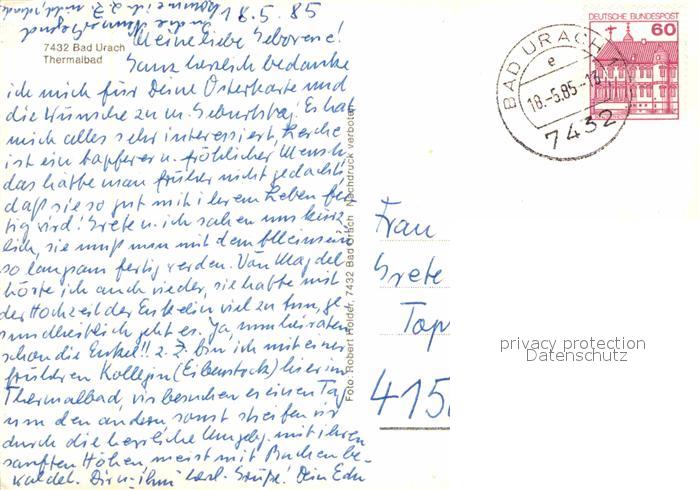 18.5.85
7432 Bad Urach
Thermalbad
Meine liebe
Ganz herzlich bedanke
ich mich für Deine Osterkarte und
die Wünsche zu m. Geburtstag. Es hat
mich alles sehr interessiert,
ist ein tapferer u. fröhlicher Mensch
das hätte man früher nicht gedacht
daß sie so gut mit ihrem Leben fer-
tig wird! Grete u. ich sahen uns kürz-
lich, sie muß nun mit dem Alleinsein
so langsam fertig werden. Von Magdel
hörte ich auch wieder, sie hatte mit
der Hochzeit der Enkelin viel zu tun, ge-
sundheitlich geht es. Ja, nun heiraten
schon die Enkel!! z. Z. bin ich mit einer
früheren Kollegin (Eibenstock) hier im
Thermalbad, wir besuchen es einen Tag
um den andern, sonst streifen wir
durch die herrliche Umgebg. mit ihren
sanften Höhen meist mit Buchen be-
waldet. Dir u. ihm herzl. Grüße! Dein
Foto: Robert Holder, 7432 Bad Urach Nachdruck verboten
DEUTSCHE BUNDESPOST
60
BAD URACH 1
e
18.-5.85-18
7432
Frau
Grete
Top
415
privacy protection
Datenschutz